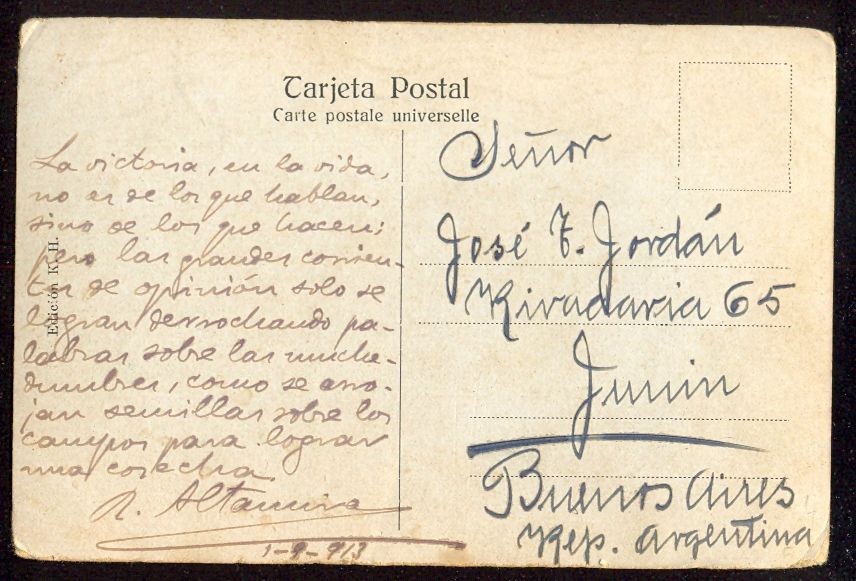 Tarjeta Postal
Carte postale universelle
La victoria, en la vida,
no es de los que hablan,
sino de los que hacen;
pero las grandes corrien-
tes de opinión solo se
logran derrochando pa-
labras sobre las muche-
dumbres, como se arro-
jan semillas sobre los
campos para lograr
una cosecha
R. Altamira
1-9-913
Edición K. H.
Señor
José T. Jordán
Rivadavia 65
Junin
Buenos Aires
Rep. Argentina